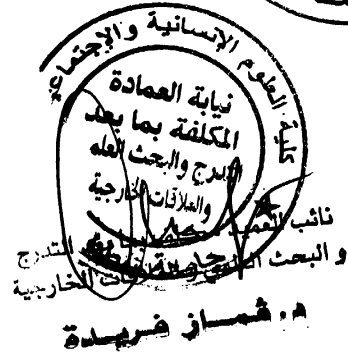 كلية العلوم الإنسانية والإجتماعية
نيابة العمادة
المكلفة بما بعد
التدرج والبحث العلمي
والعلاقات الخارجية
نائب العميد التدرج
و البحث الخارجية
فريدة